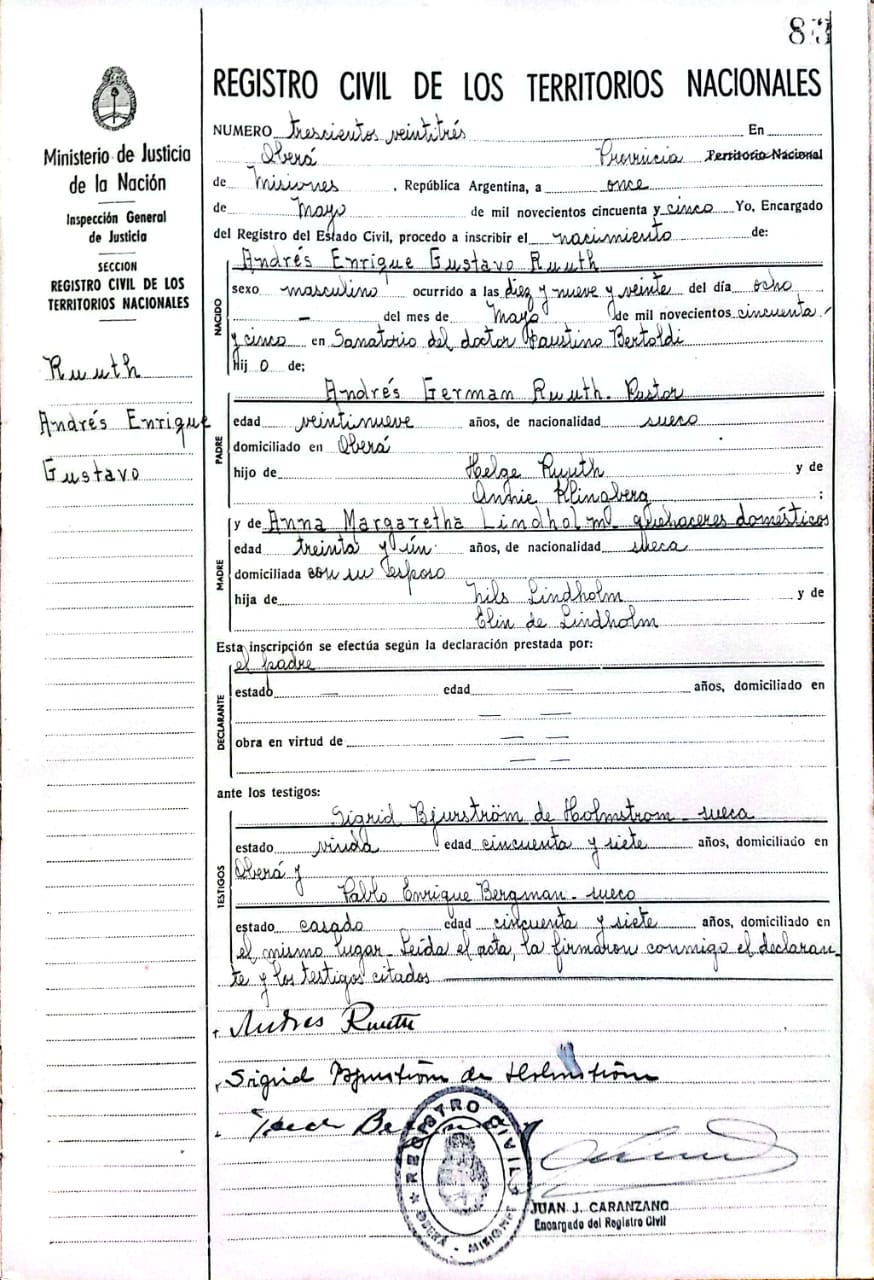 83
REGISTRO CIVIL DE LOS TERRITORIOS NACIONALES
Ministerio de Justicia
de la Nación
Inspección General
de Justicia
SECCION
REGISTRO CIVIL DE LOS
TERRITORIOS NACIONALES
Ruuth
Andrés Enrique
Gustavo
NUMERO trescientos veintitrés En
Oberá Provincia Territorio Nacional
de Misiones, República Argentina, a once
de Mayo de mil novecientos cincuenta y cinco Yo, Encargado
del Registro del Estado Civil, procedo a inscribir el nacimiento de:
NACIDO
Andrés Enrique Gustavo Ruuth
sexo masculino ocurrido a las diez y nueve y veinte del día ocho
— del mes de Mayo de mil novecientos cincuenta
y cinco en Sanatorio del doctor Faustino Bertoldi
Hij o de;
PADRE
Andrés German Ruuth. Pastor
edad veintinueve años, de nacionalidad sueco
domiciliado en Oberá
hijo de Helge Ruuth y de
Annie Klingberg ;
MADRE
y de Anna Margaretha Lindholm. quehaceres domésticos
edad treinta y ún años, de nacionalidad sueca
domiciliada con su esposo
hija de Nils Lindholm y de
Elin de Lindholm
Esta inscripción se efectúa según la declaración prestada por:
DECLARANTE
el padre
estado — edad — años, domiciliado en
— —
obra en virtud de — —
— —
ante los testigos:
TESTIGOS
Sigrid Bjurström de Holmstrom - sueca
estado viuda edad cincuenta y siete años, domiciliado en
Oberá y
Pablo Enrique Bergman - sueco
estado casado edad cincuenta y siete años, domiciliado en
el mismo lugar. Leída el acta, la firmaron conmigo el declaran-
te y los testigos citados
Andres Ruuth
Sigrid Bjurström de Holmström
REGISTRO CIVIL
OBERÁ - MISIONES
JUAN J. CARANZANO
Encargado del Registro Civil